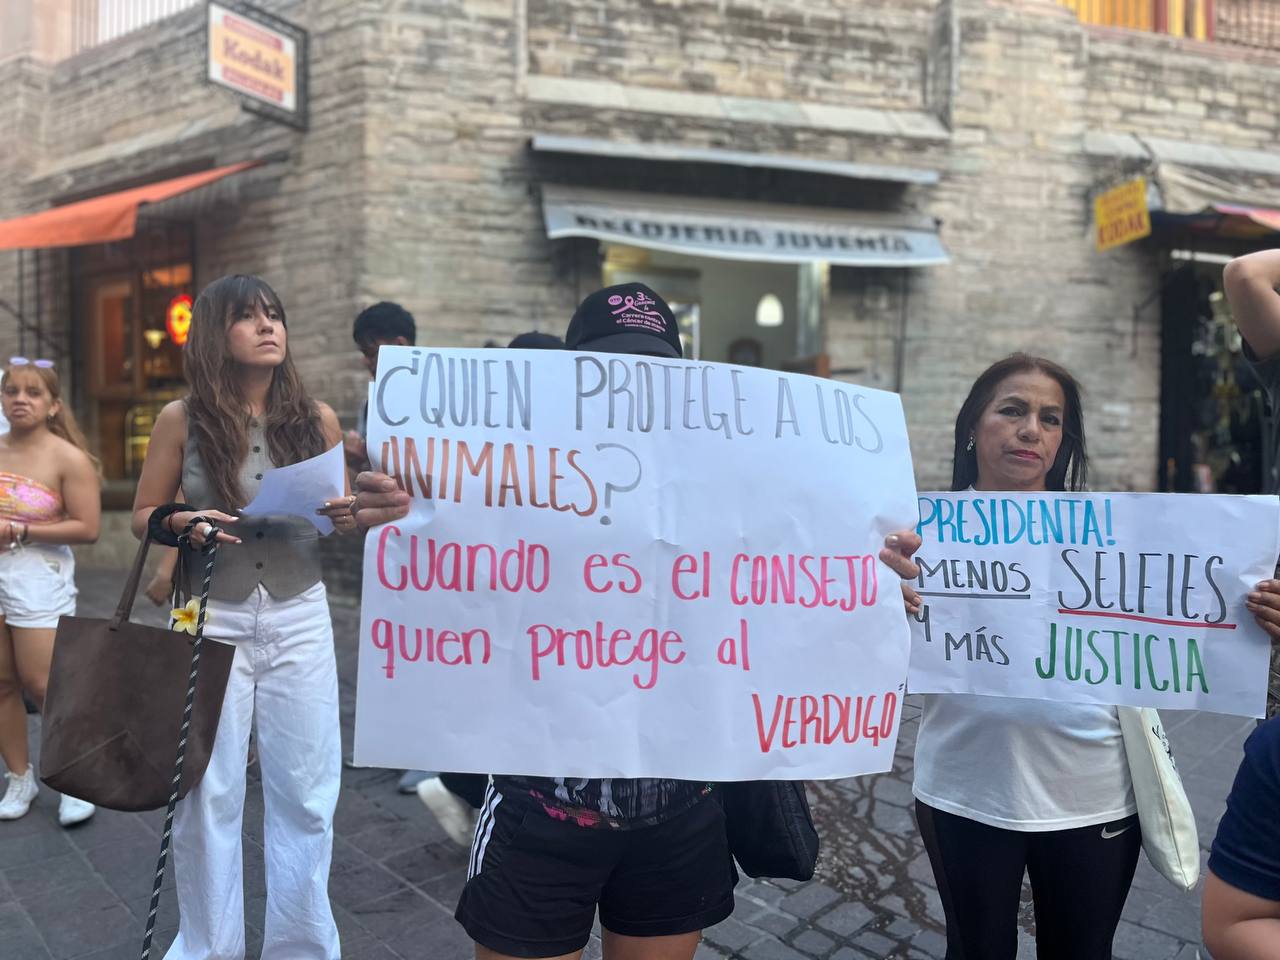 Kodak
RELOJERIA JUVENIA
KODAK
3a
Carrera contra
el Cáncer de mama
¿QUIEN PROTEGE A LOS
ANIMALES?
Cuando es el CONSEJO
quien protege al
VERDUGO"
PRESIDENTA!
MENOS SELFIES
y MÁS JUSTICIA